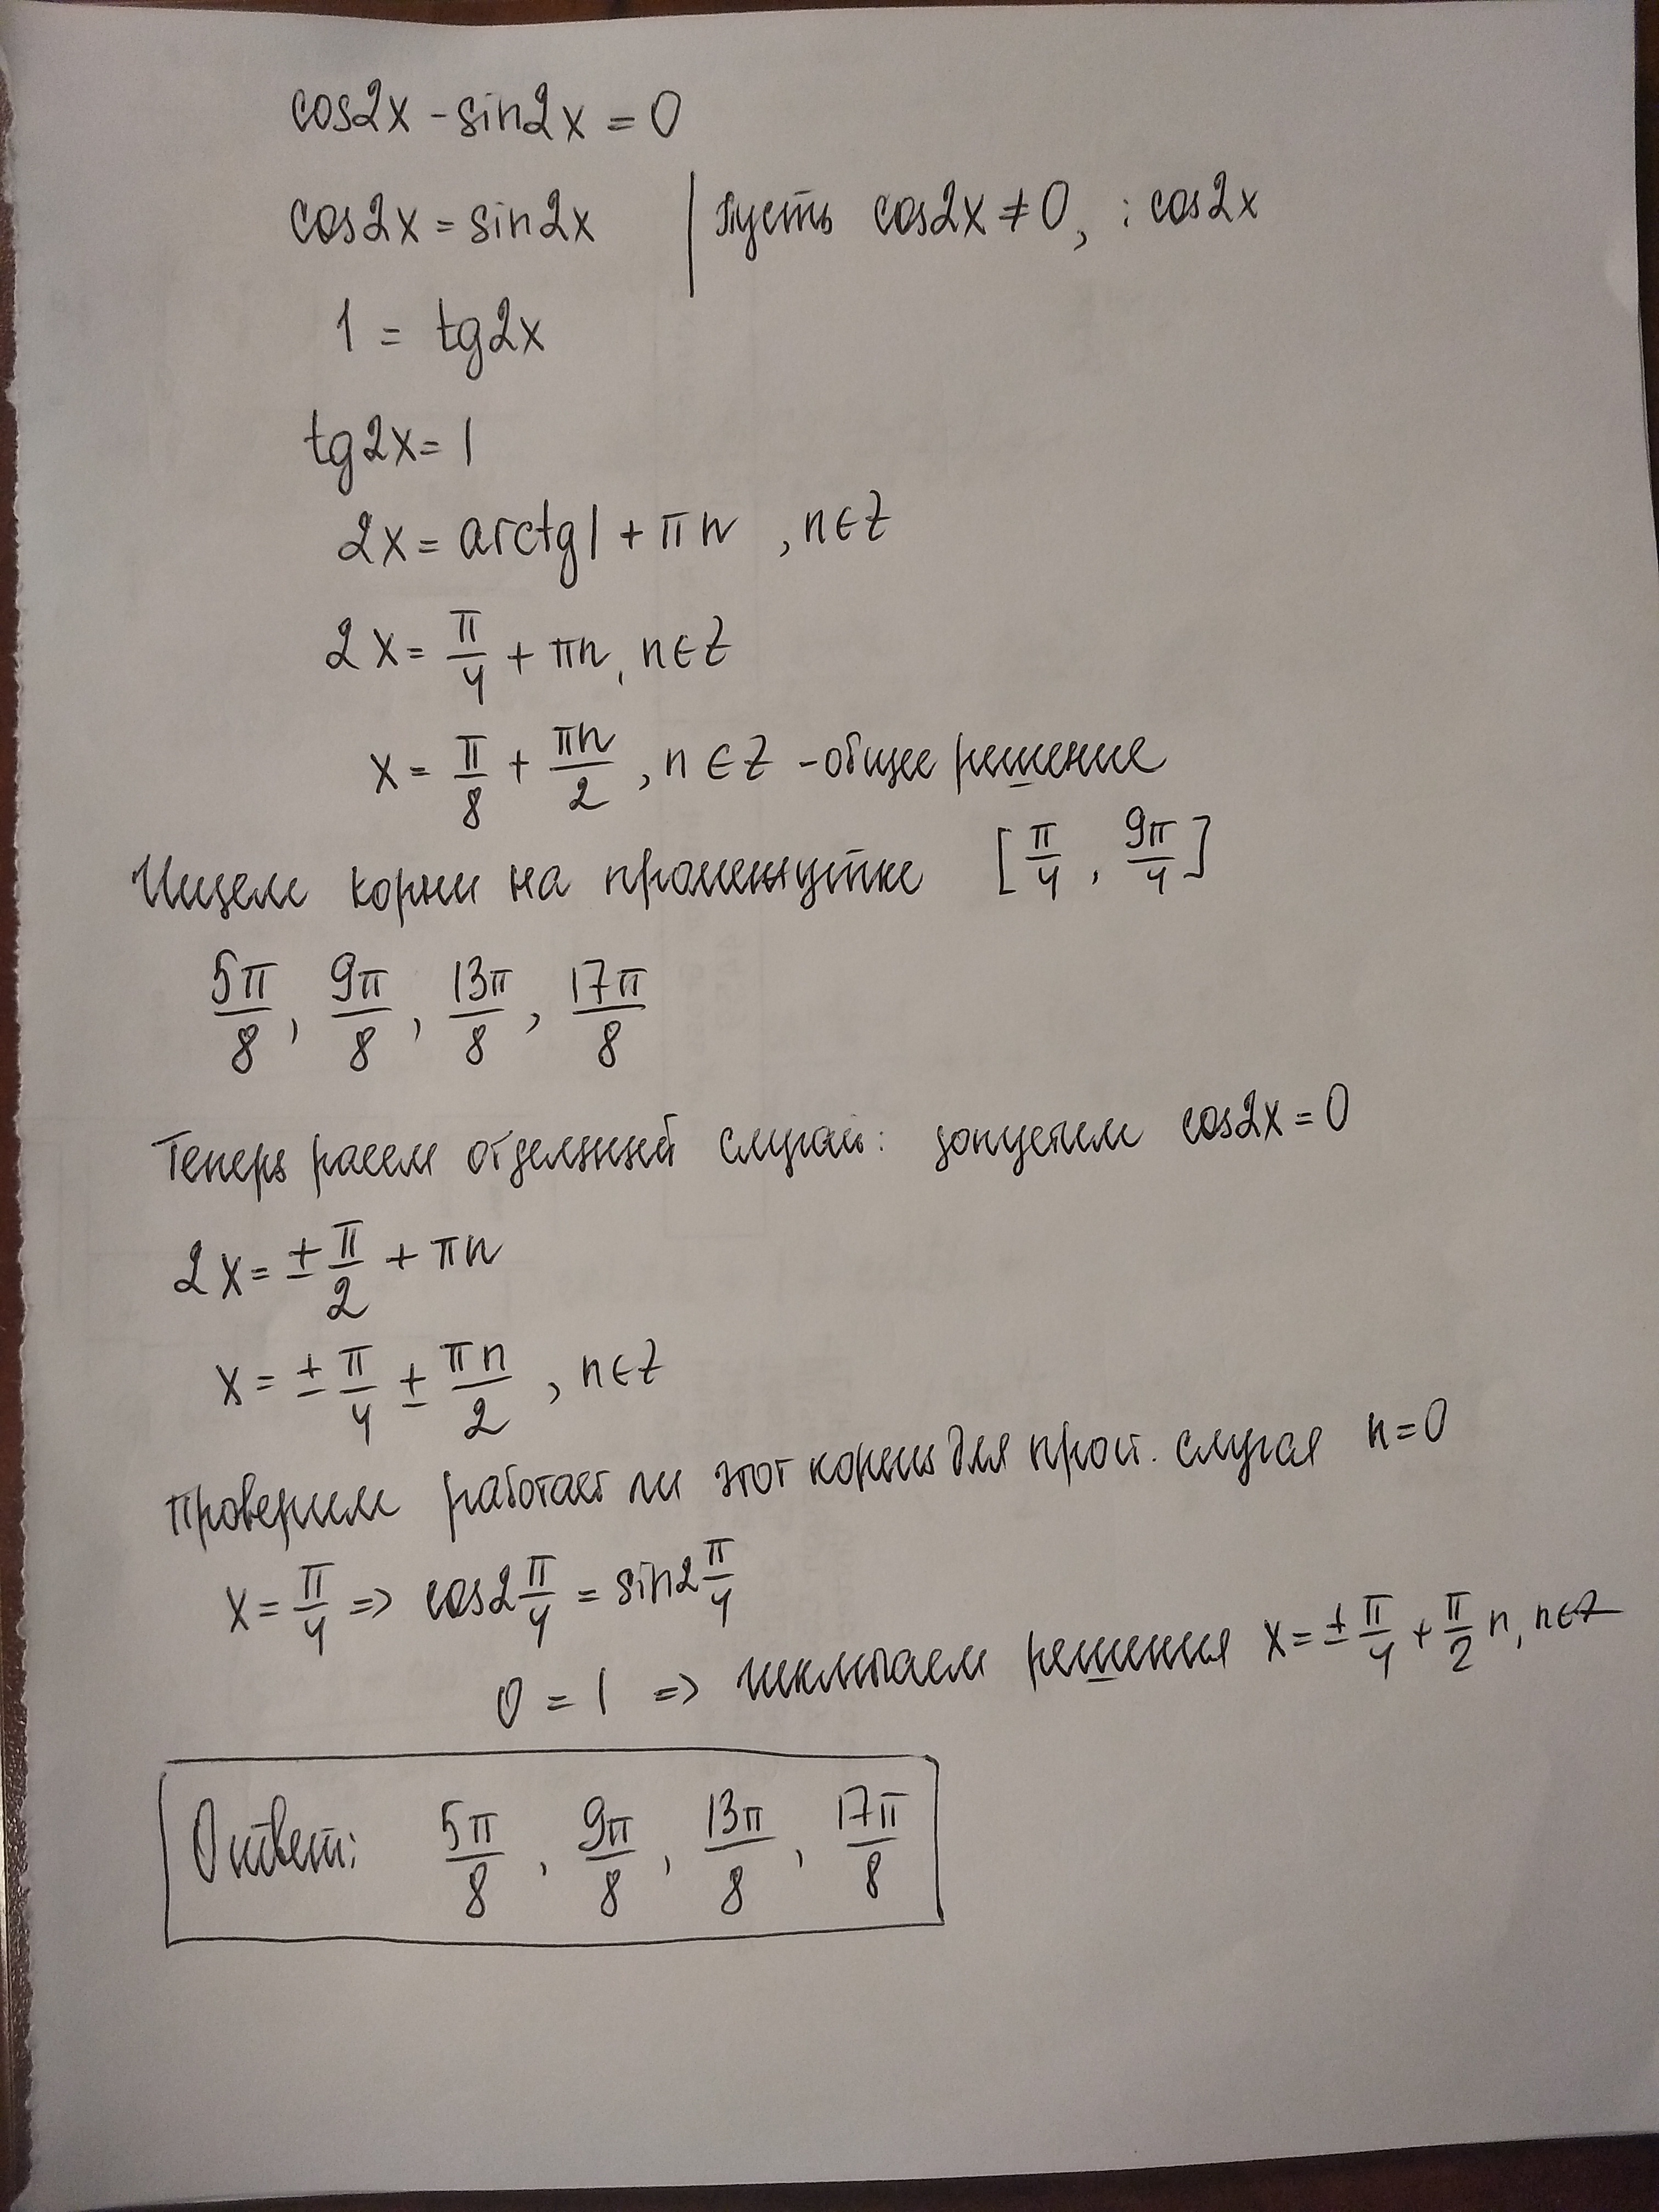 cos2x - sin2x = 0
cos2x = sin2x | пусть cos2x ≠ 0, : cos2x
1 = tg2x
tg2x = 1
2x = arctg1 + πn , n∈Z
2x = π/4 + πn, n∈Z
x = π/8 + πn/2 , n∈Z - общее решение
Ищем корни на промежутке [π/4 , 9π/4]
5π/8 , 9π/8 , 13π/8 , 17π/8
Теперь расcм отдельный случай: допустим cos2x = 0
2x = ± π/2 + πn
x = ± π/4 ± πn/2 , n∈Z
Проверим работает ли этот корень для прост. случая n = 0
x = π/4 => cos2π/4 = sin2π/4
0 = 1 => исключаем решения x = ± π/4 + π/2 n, n∈Z
Ответ: 5π/8 , 9π/8 , 13π/8 , 17π/8